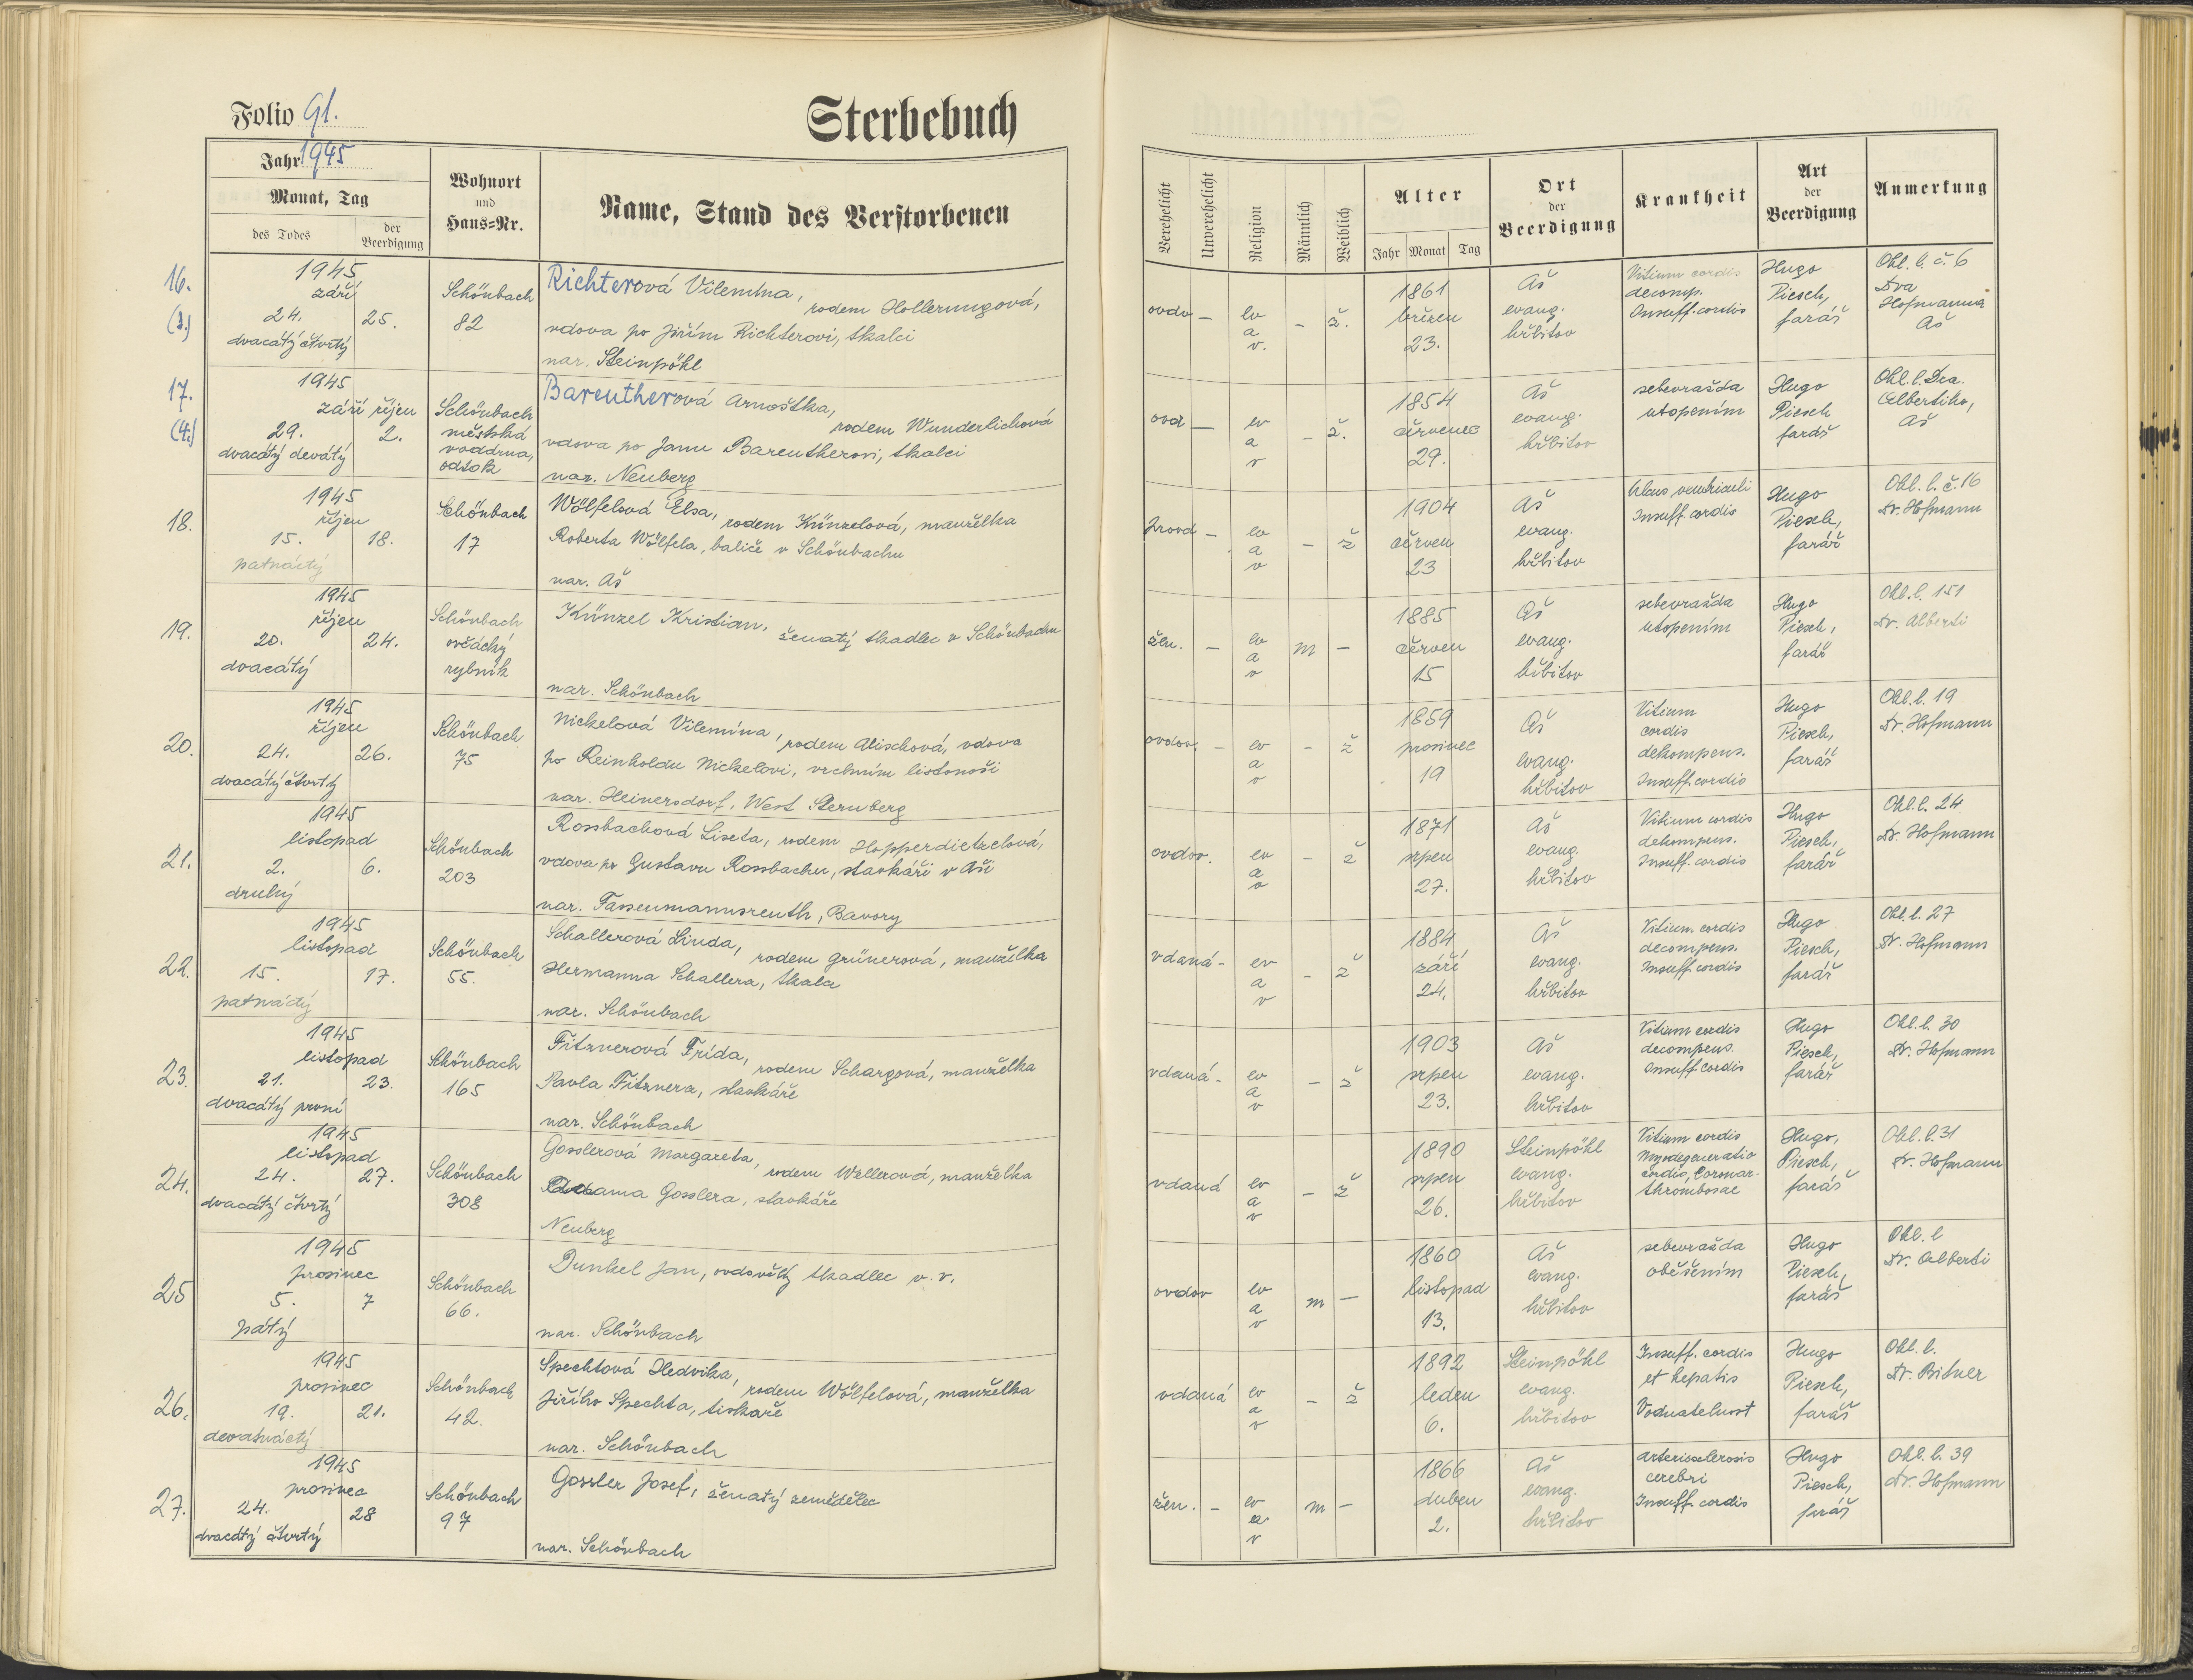 Folio 91.
Sterbebuch
Jahr 1945
Monat, Tag
des Todes
der Beerdigung
Wohnort
und
Haus=Nr.
Name, Stand des Verstorbenen
Verehelicht
Unverehelicht
Religion
Männlich
Weiblich
Alter
Jahr Monat Tag
Ort
der
Beerdigung
Krankheit
Art
der
Beerdigung
Anmerkung
16.
(3.)
1945
září
24. 25.
dvacátý čtvrtý
Schönbach
82
Richterová Vilemína,
rodem Hollerungová,
vdova po Jiřím Richterovi, tkalci
nar. Steinpöhl
ovdv – ev a v. – ž.
1861
březen
23.
Aš
evang.
hřbitov
Vitium cordis
decomp.
Insuff. cordis
Hugo
Piesch,
farář
Ohl. l. č. 6
Dra
Hofmanna
Aš
17.
(4.)
1945
září říjen
29. 2.
dvacátý devátý
Schönbach
městská
vodárna,
odtok
Bareutherová Arnoštka,
rodem Wunderlichová
vdova po Janu Bareutherovi, tkalci
nar. Neuberg
ovd – ev a v – ž.
1854
červenec
29.
Aš
evang.
hřbitov
sebevražda
utopením
Hugo
Piesch
farář
Ohl. l. Dra.
Albertiho,
Aš
18.
1945
říjen
15. 18.
patnáctý
Schönbach
17
Wölfelová Elsa,
rodem Künzelová, manželka
Roberta Wölfela, baliče v Schönbachu
nar. Aš
– ev a v – ž
1904
červen
23
Aš
evang.
hřbitov
Ulcus ventriculi
Insuff. cordis
Hugo
Piesch,
farář
Ohl. l. č. 16
Dr. Hofmann
19.
1945
říjen
20. 24.
dvacátý
Schönbach
ovčácký
rybník
Künzel Kristian,
ženatý tkadlec v Schönbachu
nar. Schönbach
žen. – ev a v m –
1885
červen
15
Aš
evang.
hřbitov
sebevražda
utopením
Hugo
Piesch,
farář
Ohl. l. 151
Dr. Alberti
20.
1945
říjen
24. 26.
dvacátý čtvrtý
Schönbach
75
Nickelová Vilemína,
rodem Alischová, vdova
po Reinholdu Nickelovi, vrchním listonoši
nar. Heinersdorf, West Sternberg
ovdov. – ev a v – ž
1859
prosinec
19
Aš
evang.
hřbitov
Vitium
cordis
dekompens.
Insuff. cordis
Hugo
Piesch,
farář
Ohl. l. 19
Dr. Hofmann
21.
1945
listopad
2. 6.
druhý
Schönbach
203
Rossbachová Liseta, rodem Hopperdietzelová,
vdova po Gustavu Rossbachu, stavkáři v Aši
nar. Tassenmannsreuth, Bavory
ovdov. ev a v – ž
1871
srpen
27.
Aš
evang.
hřbitov
Vitium cordis
dekompens.
Insuff. cordis
Hugo
Piesch,
farář
Ohl. l. 24
Dr. Hofmann
22.
1945
listopad
15. 17.
patnáctý
Schönbach
55.
Schallerová Linda,
rodem Grünerová, manželka
Hermanna Schallera, tkalce
nar. Schönbach
vdaná – ev a v – ž
1884
září
24.
Aš
evang.
hřbitov
Vitium cordis
decompens.
Insuff. cordis
Hugo
Piesch,
farář
Ohl. l. 27
Dr. Hofmann
23.
1945
listopad
21. 23.
dvacátý první
Schönbach
165
Fitznerová Frída,
rodem Schargová, manželka
Pavla Fitznera, stavkáře
nar. Schönbach
vdaná – ev a v – ž
1903
srpen
23.
Aš
evang.
hřbitov
Vitium cordis
decompens.
Insuff. cordis
Hugo
Piesch,
farář
Ohl. l. 30
Dr. Hofmann
24.
1945
listopad
24. 27.
dvacátý čtvrtý
Schönbach
308
Gosslerová Margareta,
rodem Wellerová, manželka
Adama Gosslera, stavkáře
Neuberg
vdaná ev a v – ž
1890
srpen
26.
Steinpöhl
evang.
hřbitov
Vitium cordis
Myodegeneratio
cordis, Coronar-
thrombosae
Hugo,
Piesch,
farář
Ohl. l. 31
Dr. Hofmann
25
1945
prosinec
5. 7
pátý
Schönbach
66.
Dunkel Jan, ovdovělý tkadlec v. v.
nar. Schönbach
ovdov ev a v m –
1860
listopad
13.
Aš
evang.
hřbitov
sebevražda
oběšením
Hugo
Piesch,
farář
Ohl. l
Dr. Alberti
26.
1945
prosinec
19. 21.
devatnáctý
Schönbach
42.
Spechtová Hedvika,
rodem Wölfelová, manželka
Jiřího Spechta, tiskaře
nar. Schönbach
vdaná ev a v – ž
1892
leden
6.
Steinpöhl
evang.
hřbitov
Insuff. cordis
et hepatis
Vodnatelnost
Hugo
Piesch,
farář
Ohl. l.
Dr. Bitner
27.
1945
prosinec
24. 28
dvacátý čtvrtý
Schönbach
97
Gossler Josef, ženatý zemědělec
nar. Schönbach
žen. – ev a v m –
1866
duben
2.
Aš
evang.
hřbitov
Arteriosclerosis
cerebri
Insuff. cordis
Hugo
Piesch,
farář
Ohl. l. 39
Dr. Hofmann